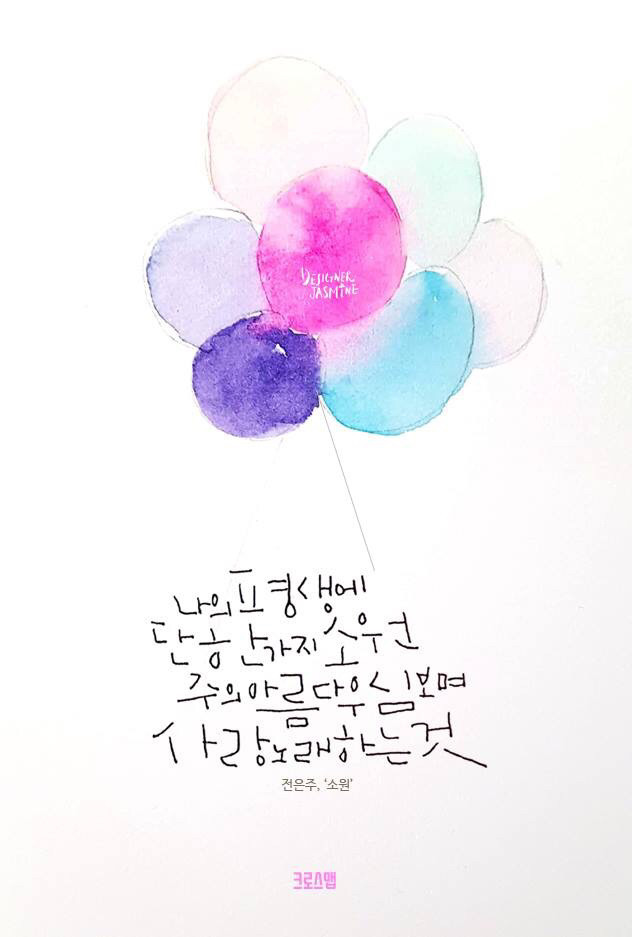 DESIGNER
JASMINE
나의 평생에
단 한가지 소원
주의 아름다우심 보며
사랑 노래하는 것
전은주, ‘소원’
크로스맵